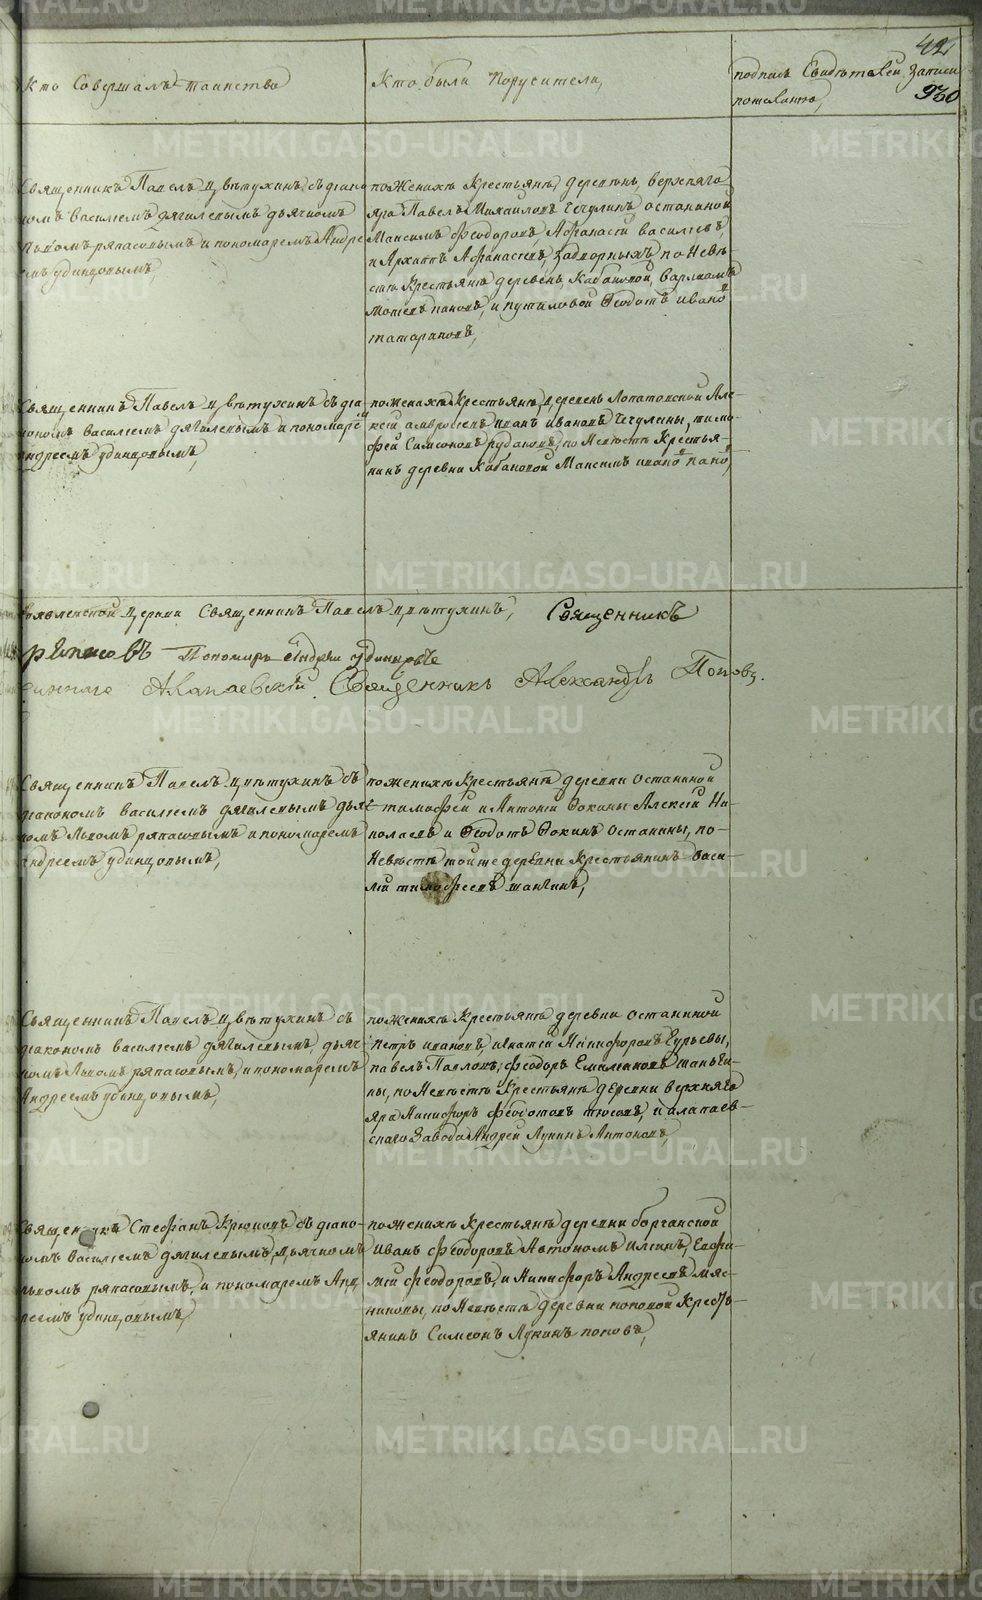 42
930
Кто Совершалъ таинство
Кто были Поручители,
подпись Свидѣтелей Записи
пожеланію,
Священникъ Павелъ Цвѣтухинъ съ діако
номъ василіемъ дягилевымъ дьячкомъ
Львомъ ряпасовымъ и пономаремъ Андре
емъ удинцовымъ,
поженихѣ Крестьянѣ деревень, верхняго
яра Павелъ Михайловъ Чечулинъ останиной
Максимъ Феодоровъ, Афанасій василіевъ,
и Архипъ Афанасіевъ, задворныхъ, по Невѣ
стѣ Крестьянѣ деревень, Кабановой, варламъ
пановъ, и путиловой Феодотъ ивановъ
татариновъ,
Священникъ Павелъ Цвѣтухинъ съ діа
кономъ василіемъ дягилевымъ и пономаремъ
андреемъ удинцовымъ,
поженихѣ Крестьянѣ, деревень Лопатовской Але
ксѣй амвросіевъ иванъ ивановъ Чечулины, тимо
фей Симеоновъ рудаковъ, по Невѣстѣ Крестья
нинъ деревни Кабановой Максимъ ивановъ пановъ,
Церкви Священникъ Павелъ Цвѣтухинъ, Священникъ
ряпасовъ Пономарь Андрей удинцовъ
Алапаевскій Священникъ Александръ Поповъ.
Священникъ Павелъ Цвѣтухинъ съ
діакономъ василіемъ дягилевымъ дьяч
комъ Львомъ ряпасовымъ и пономаремъ
андреемъ удинцовымъ,
поженихѣ Крестьянѣ деревни Останиной
тимофей и Антонъ Фокины Алексѣй Ни
колаевъ и Феодотъ Фокинъ Останины, по
Невѣстѣ той же деревни Крестьянинъ Васи
лій тимофеевъ
Священникъ Павелъ Цвѣтухинъ съ
діакономъ василіемъ дягилевымъ, дьяч
комъ Львомъ ряпасовымъ, и пономаремъ
Андреемъ удинцовымъ,
поженихѣ Крестьянѣ деревни останиной
петръ ивановъ, игнатій Никифоровъ Гурьевы,
павелъ Павловъ, феодоръ Емилiановъ
ны, по Невѣстѣ Крестьянѣ деревни верхняго
яра Никифоръ феодотовъ тюсовъ, и алапаев
скаго Завода Андрей Лукинъ Антоновъ,
Священникъ Стефанъ Крюковъ съ діако
номъ василіемъ дягилевымъ, дьячкомъ
львомъ ряпасовымъ, и пономаремъ Анд
реемъ удинцовымъ,
поженихѣ Крестьянѣ деревни
Иванъ феодоровъ Автономъ Илѣинъ, Евфи
мій феодоровъ, и Никифоръ Андреевъ мяс
никовы, по Невѣстѣ деревни поповой Кресть
янинъ Симеонъ Лукинъ поповъ,
METRIKI.GASO-URAL.RU